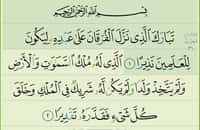 بِسْمِ اللَّهِ الرَّحْمَٰنِ الرَّحِيمِ
تَبَارَكَ الَّذِي نَزَّلَ الْفُرْقَانَ عَلَىٰ عَبْدِهِ لِيَكُونَ
لِلْعَالَمِينَ نَذِيرًا ١ الَّذِي لَهُ مُلْكُ السَّمَٰوَٰتِ وَالْأَرْضِ
وَلَمْ يَتَّخِذْ وَلَدًا وَلَمْ يَكُن لَّهُ شَرِيكٌ فِي الْمُلْكِ وَخَلَقَ
كُلَّ شَيْءٍ فَقَدَّرَهُ تَقْدِيرًا ٢